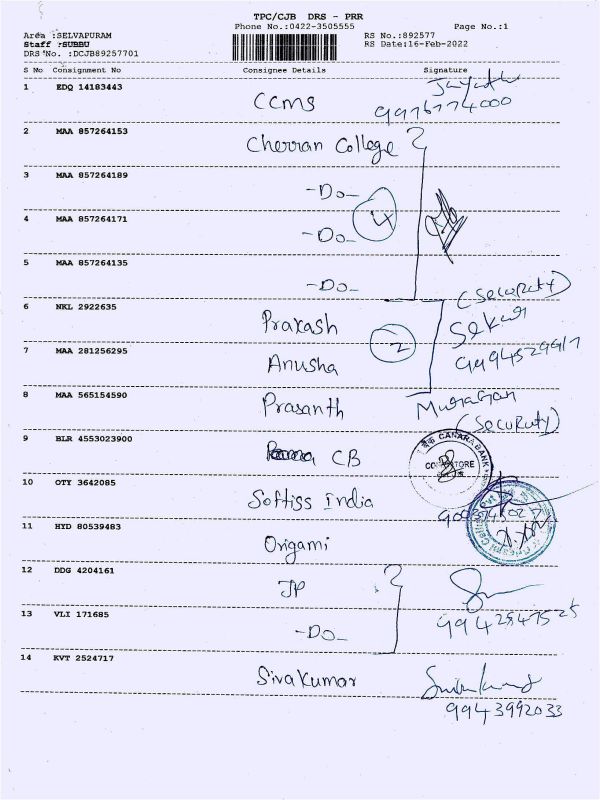 TPC/CJB DRS - PRR
Phone No.:0422-3505555 Page No.:1
Area :SELVAPURAM RS No.:892577
Staff :SUBBU RS Date:16-Feb-2022
DRS No. :DCJB89257701
S No Consignment No Consignee Details Signature
1 EDQ 14183443 CCMS
9976774000
2 MAA 857264153 Cherran College
3 MAA 857264189 -Do-
4
4 MAA 857264171 -Do-
5 MAA 857264135 -Do-
(Security)
6 NKL 2922635 Prakash Sekar
2
7 MAA 281256295 Anusha
8 MAA 565154590 Prasanth Murugan
(Security)
9 BLR 4553023900 CB
CANARA BANK
COIMBATORE
10 OTY 3642085 Softiss India
11 HYD 80539483 Origami
12 DDG 4204161 JP
13 VLI 171685 -Do-
14 KVT 2524717 Sivakumar
9943992033